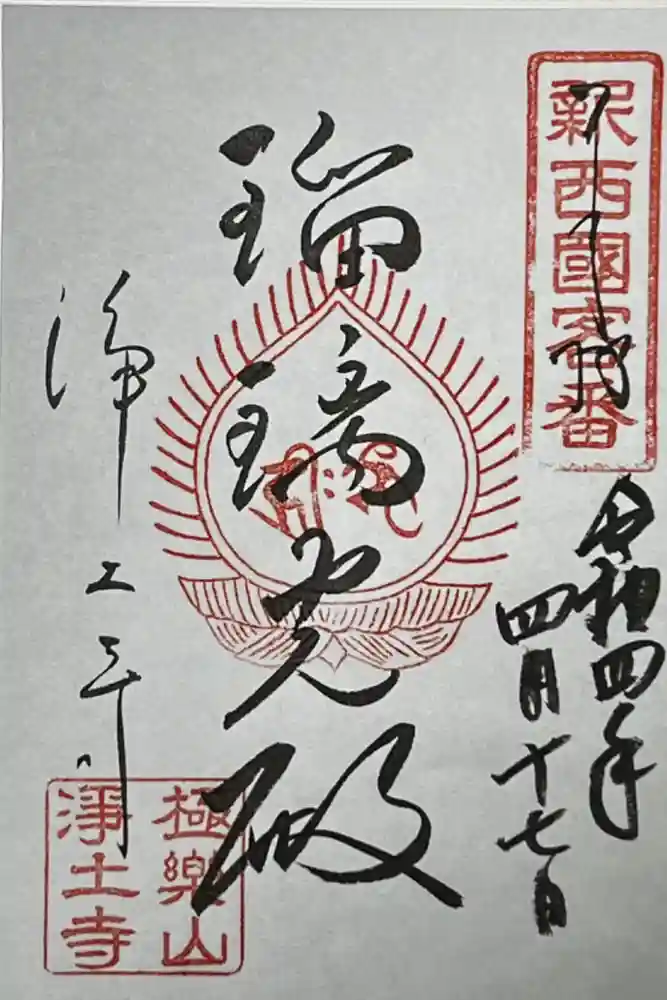 新西國客番
令和四年
四月十七日
瑠璃光殿
浄土寺
極樂山
淨土寺